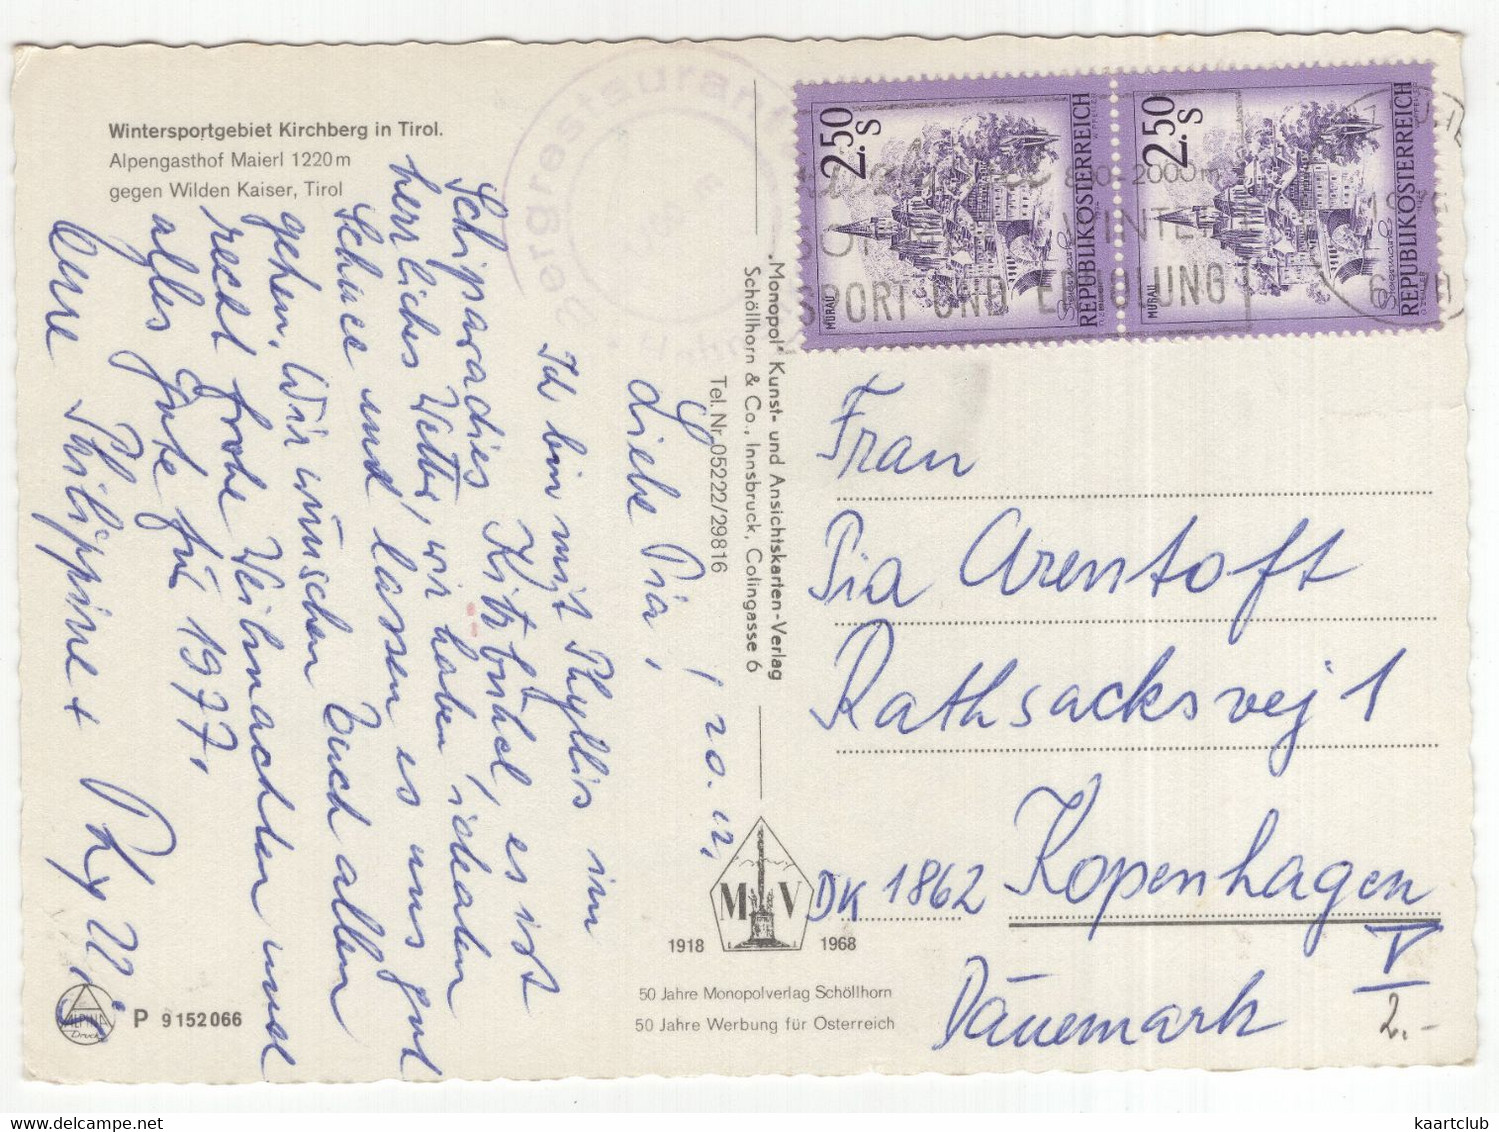 Wintersportgebiet Kirchberg in Tirol.
Alpengasthof Maierl 1220 m
gegen Wilden Kaiser, Tirol
20. 12.
Liebe Pia,
Ich bin mit Phyllis im
Schiparadies Kitzbühel, es ist
herrliches Wetter, wir haben idealen
Schnee und lassen es uns gut
gehen. Wir wünschen Euch allen
recht frohe Weihnachten und
alles Gute für 1977.
Eure Philippine +
"Monopol" Kunst- und Ansichtskarten-Verlag
Schöllhorn & Co., Innsbruck, Colingasse 6
Tel. Nr. 05222/29816
M V
1918 1968
50 Jahre Monopolverlag Schöllhorn
50 Jahre Werbung für Österreich
ALPINA
Druck
P 9 152 066
2.50
S
MURAU
REPUBLIK ÖSTERREICH
2.50
S
MURAU
REPUBLIK ÖSTERREICH
800-2000m
SPORT UND ERHOLUNG
Bergrestaurant
Frau
Pia Arentoft
Rathsacksvej 1
DK 1862 Kopenhagen
V
Dänemark
2.-
kaartclub